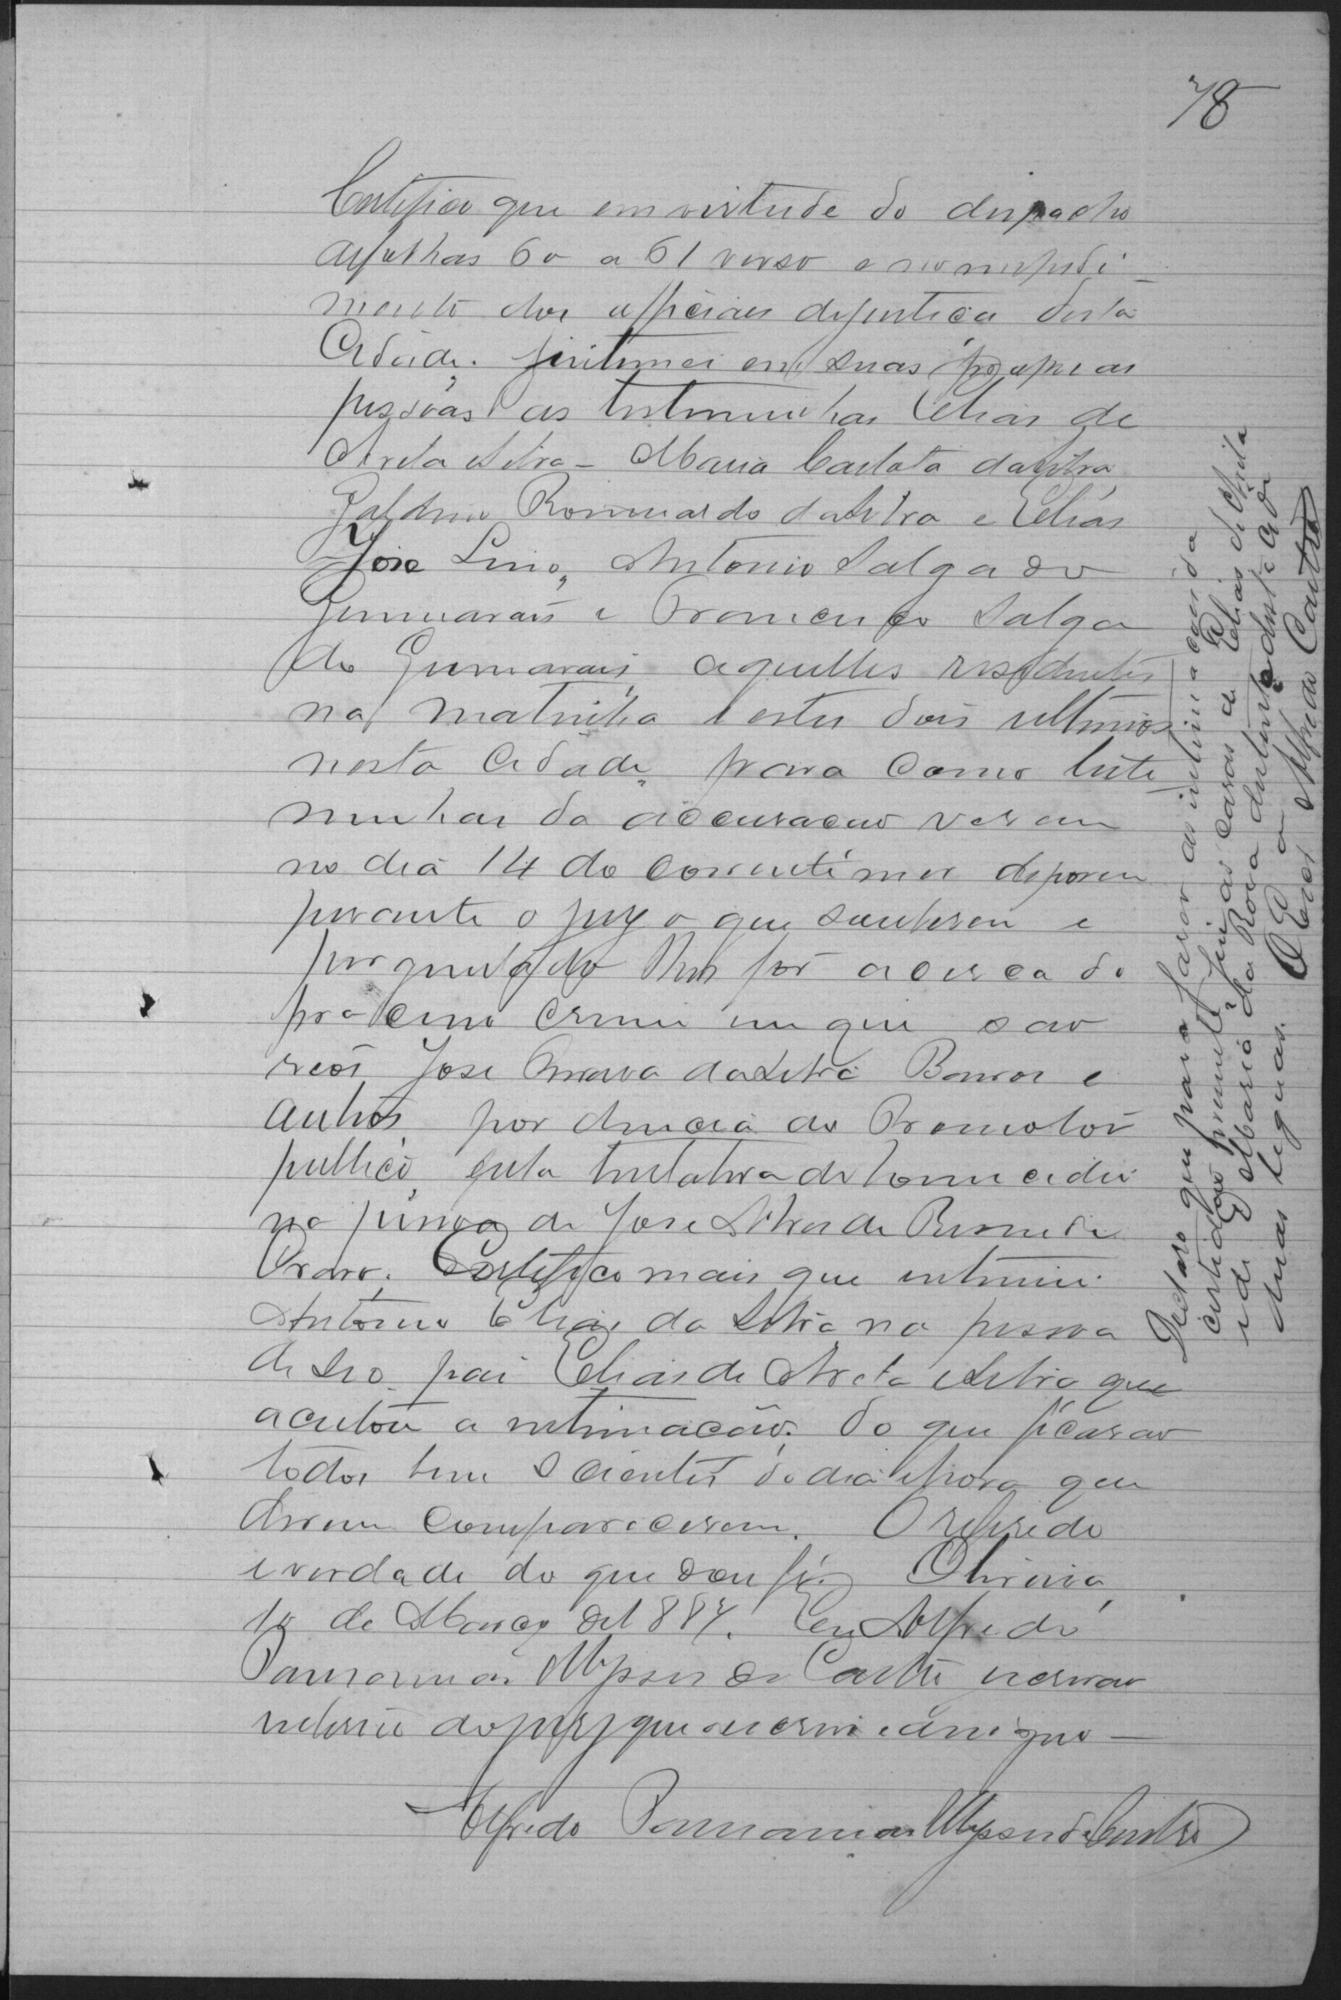 78
Certifico que em virtude do dispacho
de folhas 60 a 61 verso e no impedi-
mento dos officiaes dejustica desta
Cidade. intimei em suas proprias
pessoas as testimunhas Elias de
Arêda eSilva - Maria Carlota daSilva
Galdino Romuardo daSilva e Elias
Jose Lino, Antonio Salgado
Guimarais e Francisco Salga
do Guimarais, aquelles residentes
na e estes dois ultimos
nesta Cidade, para como teste
munhas da accusacao verem
no dia 14 do corrente mes deporem
perante o juizo que souberem e
perguntado lhes for acerca do
procenso crime em que sao
reos Jose daSilva Barros e
outros, por denucia do Promotor
publico, pela tentativa de homicidio
na pessoa de Jose Alves de
. Certifico mais que intimei
Antonio Elias da Silva na pessoa
de seo pai Elias de Areda eSilva que
aceitou a intimacão. do que ficarao
todos bem Scientes do dia ehora que
devem comparecerem. O referido
e verdade do que dou fé. Oliveira,
10 de Março de1887. Eu Alfredo
de Castro escrivao
interino do juizo que o escrevi e assigno—
Alfredo de Castro
Declaro que para fazer as intimacoes da
certidao primeira fui as casas de Elias de Arêda
e de Maria da Roca distante desta Cidade
duas leguas. O Escrivão Alfredo Castro